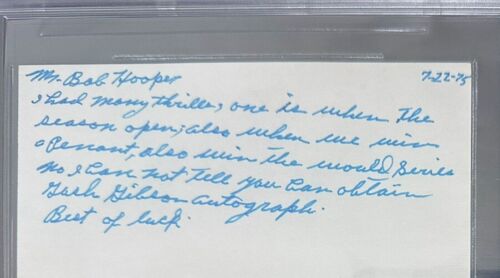 Mr. Bob Hooper 7-22-75
I had many thrills, one is when the
season open; also when we win
a Penant, also win the would Series
No I can not tell you can obtain
Gosh Gibson autograph.
Best of luck.